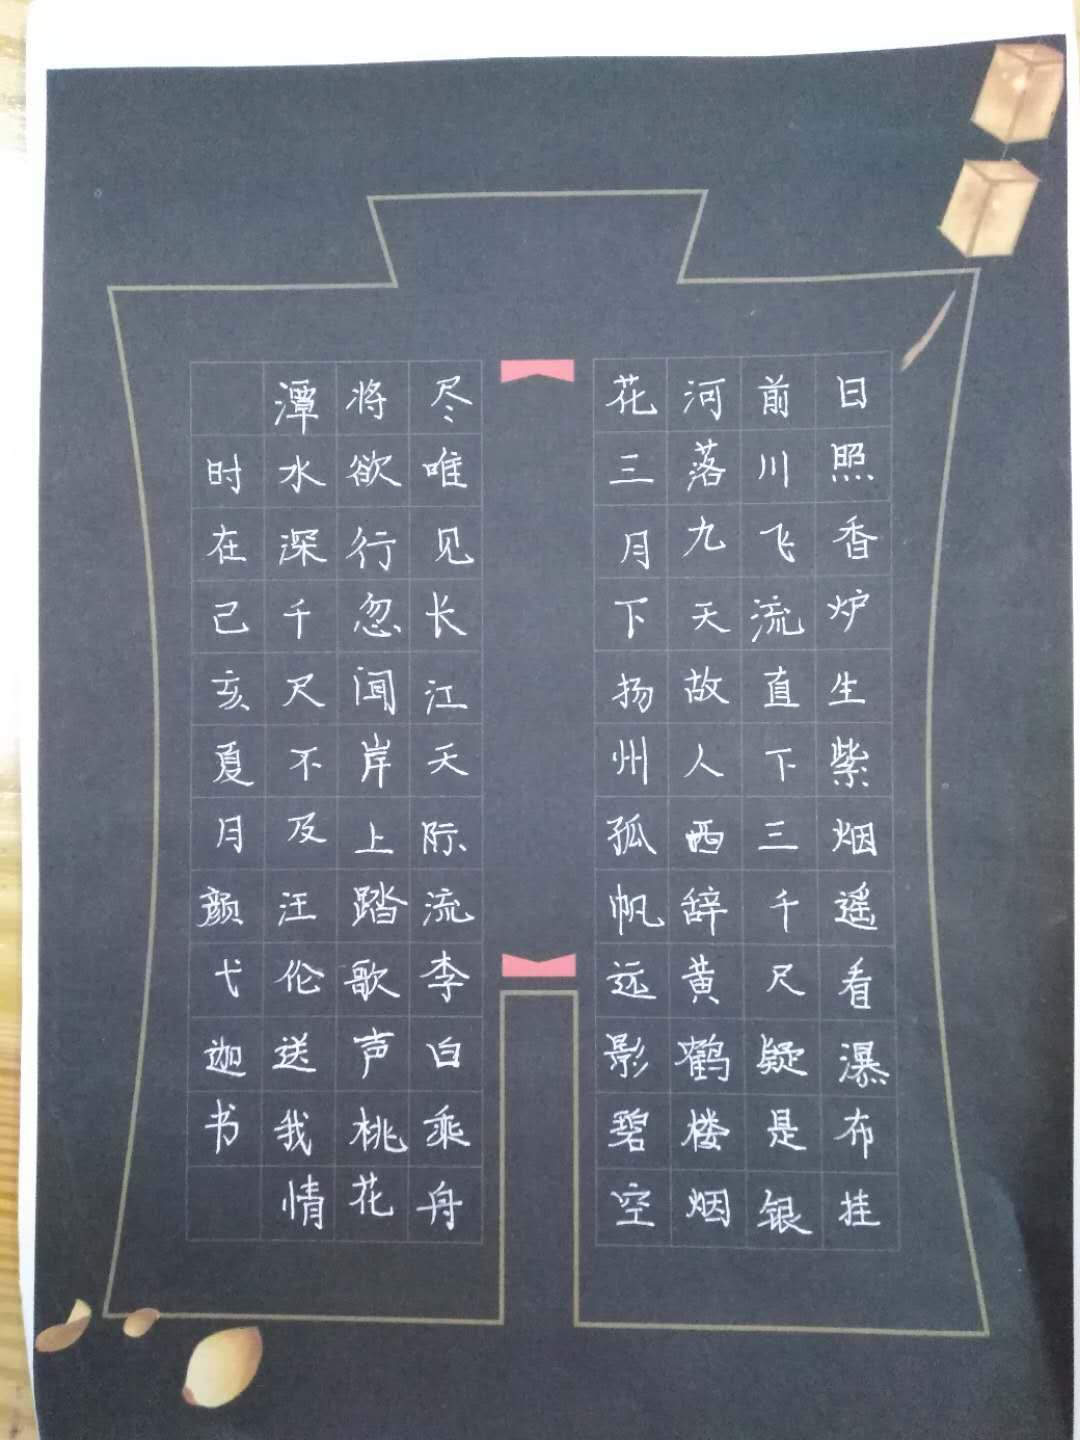 日照香炉生紫烟遥看瀑布挂
前川飞流直下三千尺疑是银
河落九天故人西辞黄鹤楼烟
花三月下扬州孤帆远影碧空
尽唯见长江天际流李白乘舟
将欲行忽闻岸上踏歌声桃花
潭水深千尺不及汪伦送我情
时在己亥夏月颜弋迦书